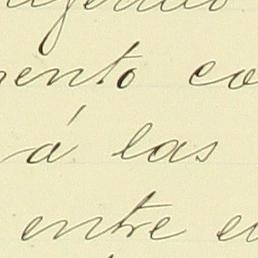 mento co
á las
entre e